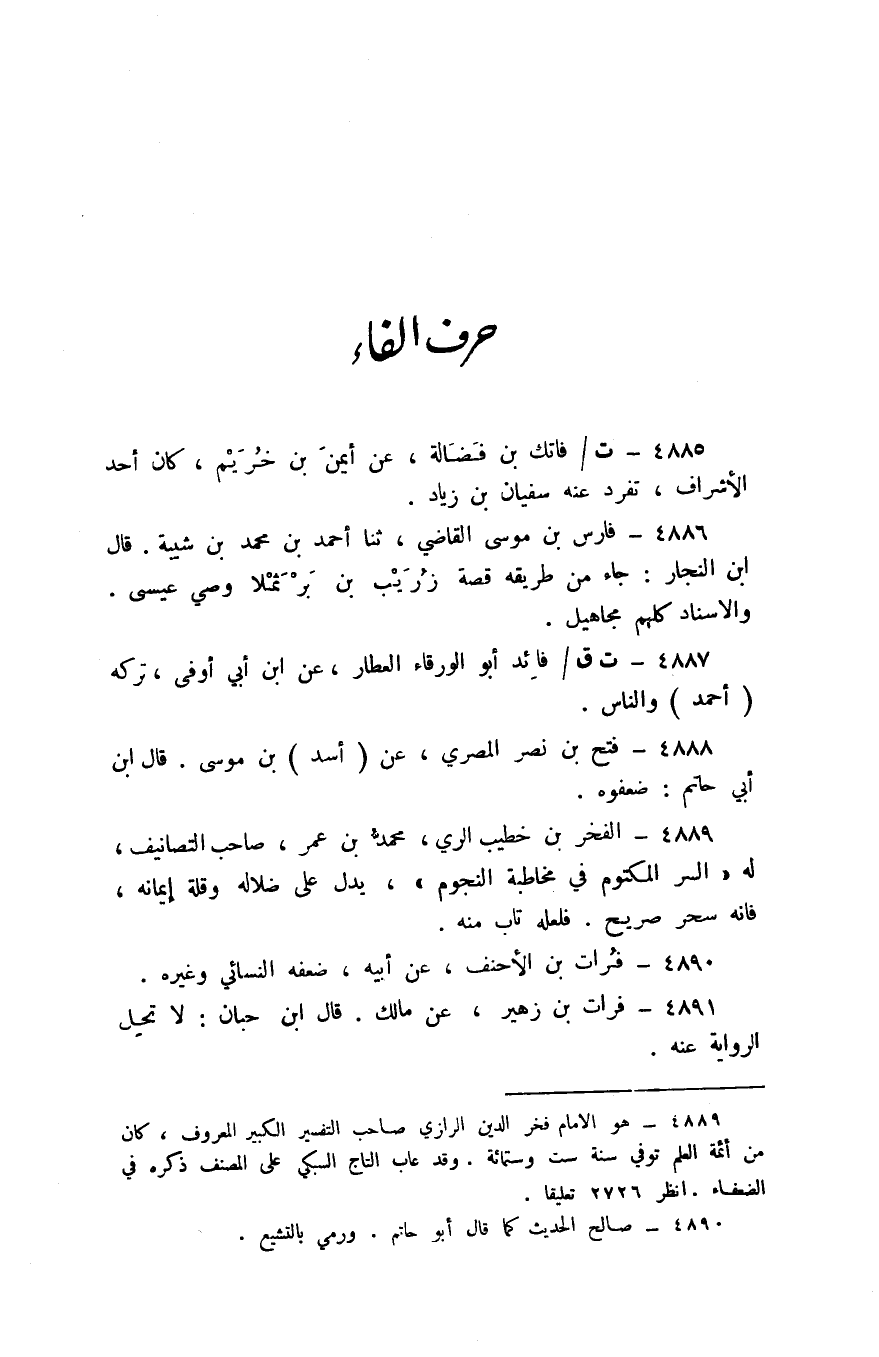 حرف الفاء
٤٨٨٥ – ت / فاتك بن فَضَالة ، عن أيمنَ بن خُرَيْم ، كان أحد
الأشراف ، تفرد عنه سفيان بن زياد .
٤٨٨٦ – فارس بن موسى القاضي ، ثنا أحمد بن محمد بن شيبة . قال
ابن النجار : جاء من طريقه قصة زُرَيْب بن بَرْثَمْلا وصي عيسى .
والاسناد كلهم مجاهيل .
٤٨٨٧ – ت ق / فائد أبو الورقاء العطار ، عن ابن أبي أوفى ، تركه
( أحمد ) والناس .
٤٨٨٨ – فتح بن نصر المصري ، عن ( أسد ) بن موسى . قال ابن
أبي حاتم : ضعفوه .
٤٨٨٩ – الفخر بن خطيب الري ، محمدُ بن عمر ، صاحب التصانيف ،
له « السر المكتوم في مخاطبة النجوم » ، يدل على ضلاله وقلة إيمانه ،
فانه سحر صريح . فلعله تاب منه .
٤٨٩٠ – فُرات بن الأحنف ، عن أبيه ، ضعفه النسائي وغيره .
٤٨٩١ – فرات بن زهير ، عن مالك . قال ابن حبان : لا تحل
الرواية عنه .
٤٨٨٩ – هو الامام فخر الدين الرازي صاحب التفسير الكبير المعروف ، كان
من أئمة العلم توفي سنة ست وستمائة . وقد عاب التاج السبكي على المصنف ذكره في
الضعفاء . انظر ٢٧٢٦ تعليقا .
٤٨٩٠ – صالح الحديث كما قال أبو حاتم . ورمي بالتشيع .